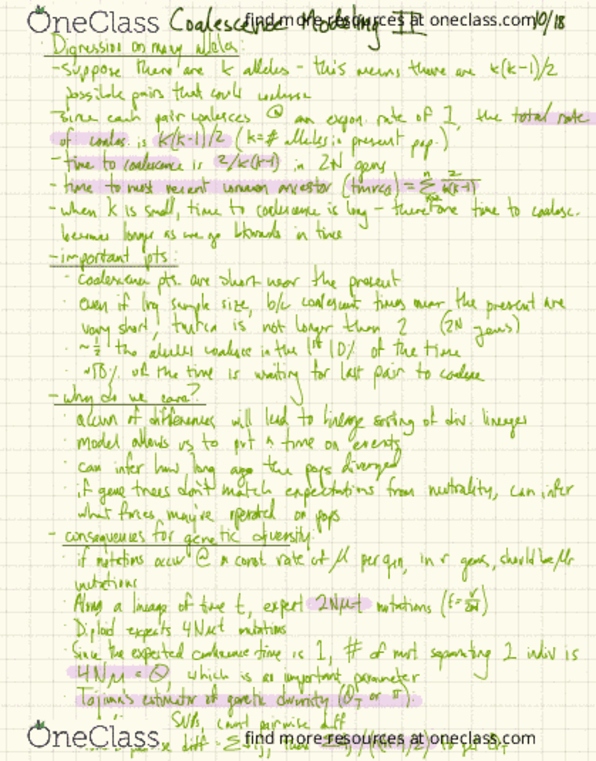 OneClass
find more resources at oneclass.com
Coalescence Modeling II 10/18
Digression on many alleles:
- suppose there are k alleles - this means there are k(k-1)/2
possible pairs that could coalesce
- since each pair coalesces @ an expon. rate of 1, the total rate
of coales. is k(k-1)/2 (k=# alleles in present pop.)
- time to coalescence is 2/k(k-1) in 2N gens
- time to most recent common ancestor (tmrca) = Σ 2/k(k-1)
- when k is small, time to coalescence is long - therefore time to coalesc.
becomes longer as we go bkwards in time
- important pts:
· coalescence pts. are short near the present
· even if lrg sample size, b/c coalescent times near the present are
very short, tmrca is not longer than 2 (2N gens)
· ~½ the alleles coalesce in the 1st 10% of the time
· ~50% of the time is waiting for last pair to coalesce
- why do we care?
· accum of differences will lead to lineage sorting of div. lineages
· model allows us to put a time on events
· can infer how long ago the pops diverged
· if gene trees don't match expectations from neutrality, can infer
what forces may've operated on pops
- consequences for genetic diversity
· if mutations occur @ a const rate of μ per gen, in r gens, should be μr
mutations
· Along a lineage of time t, expect 2Nμt mutations
· Diploid expects 4Nμt mutations
· Since the expected coalescence time is 1, # of mut separating 2 indiv is
4Nμ = Θ, which is an important parameter
· Tajima's estimator of genetic diversity (Θ or π):
SNPs, count pairwise diff
OneClass
find more resources at oneclass.com